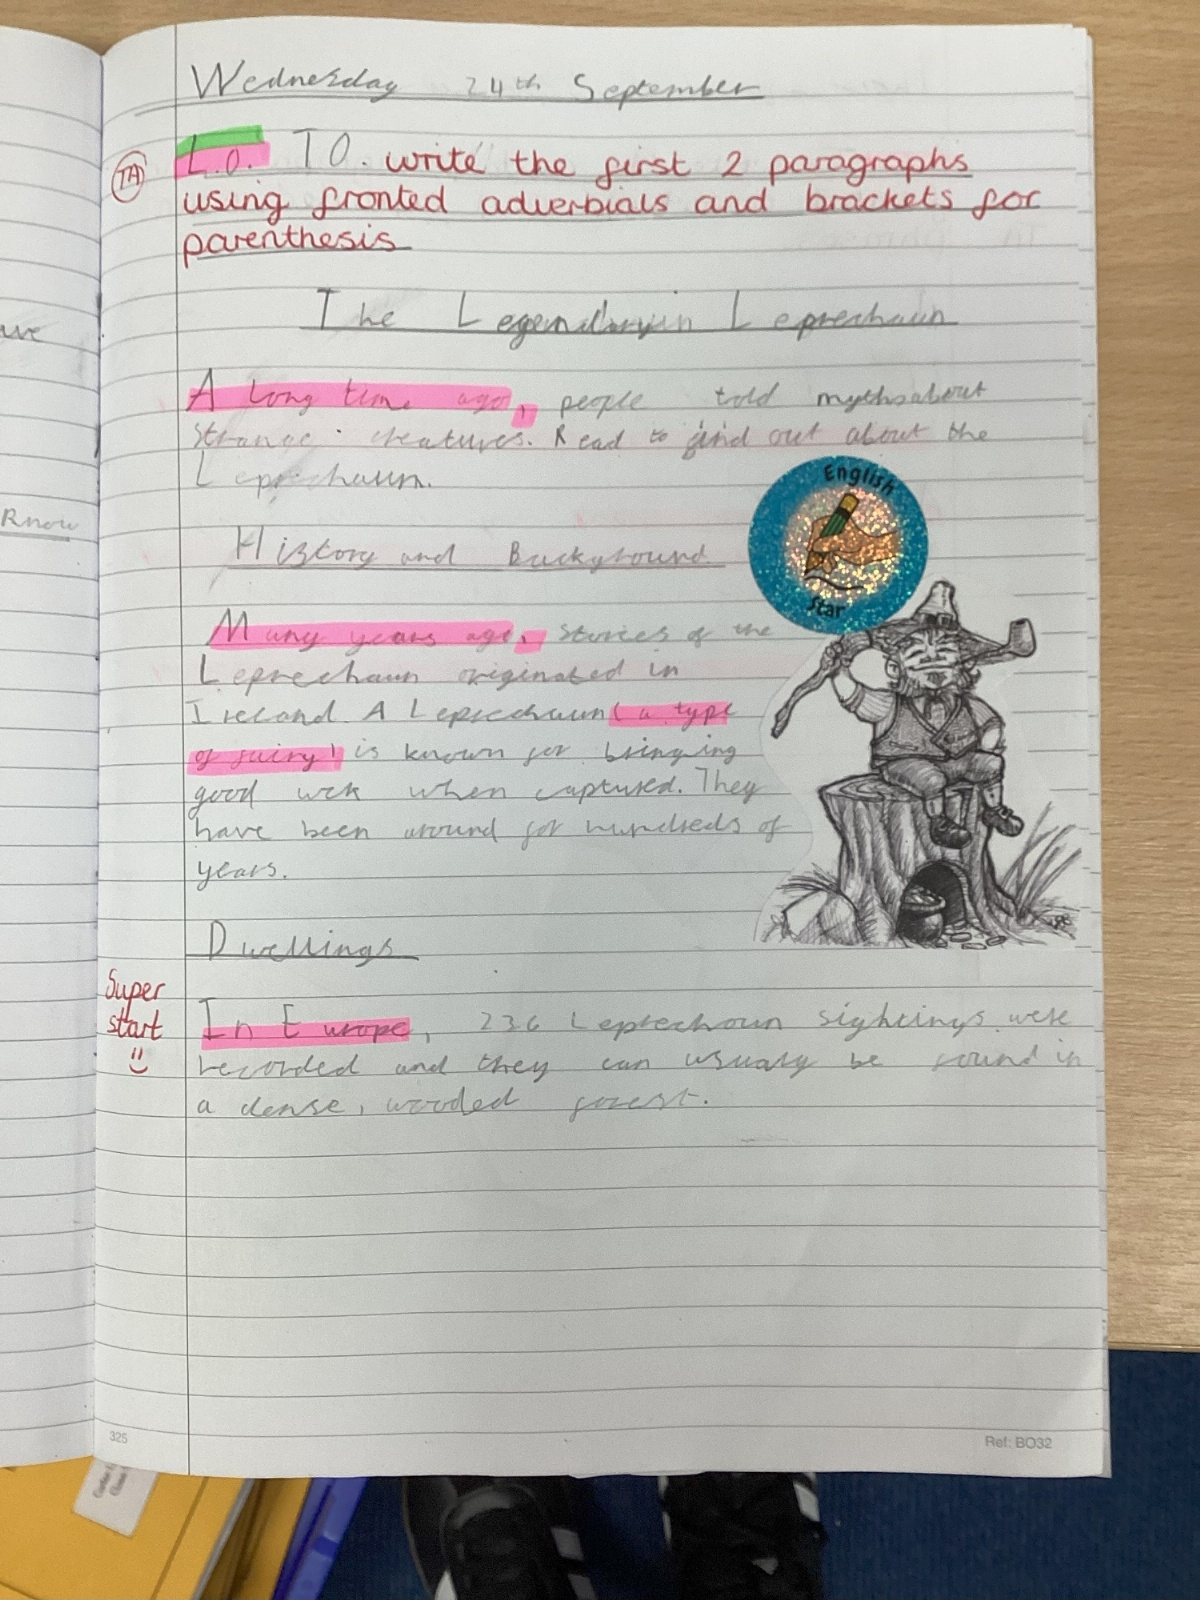 Wednesday 24th September
TA
L.O. TO. write the first 2 paragraphs
using fronted adverbials and brackets for
parenthesis
The Leprechaun
A long time ago, people told mythsabout
strange creatures. Read to find out about the
Leprechaun.
English
Star
History and Background
Many years ago, stories of the
Leprechaun originated in
Ireland A Leprechaun (a type
of fairy) is known for bringing
good when captured. They
have been around for hundreds of
years.
Dwellings
Super
start
In Europe, 236 Leprechaun sightings were
recorded and they can usualy be found in
a dense, wooded forest.
325
Ref: BO32
Know